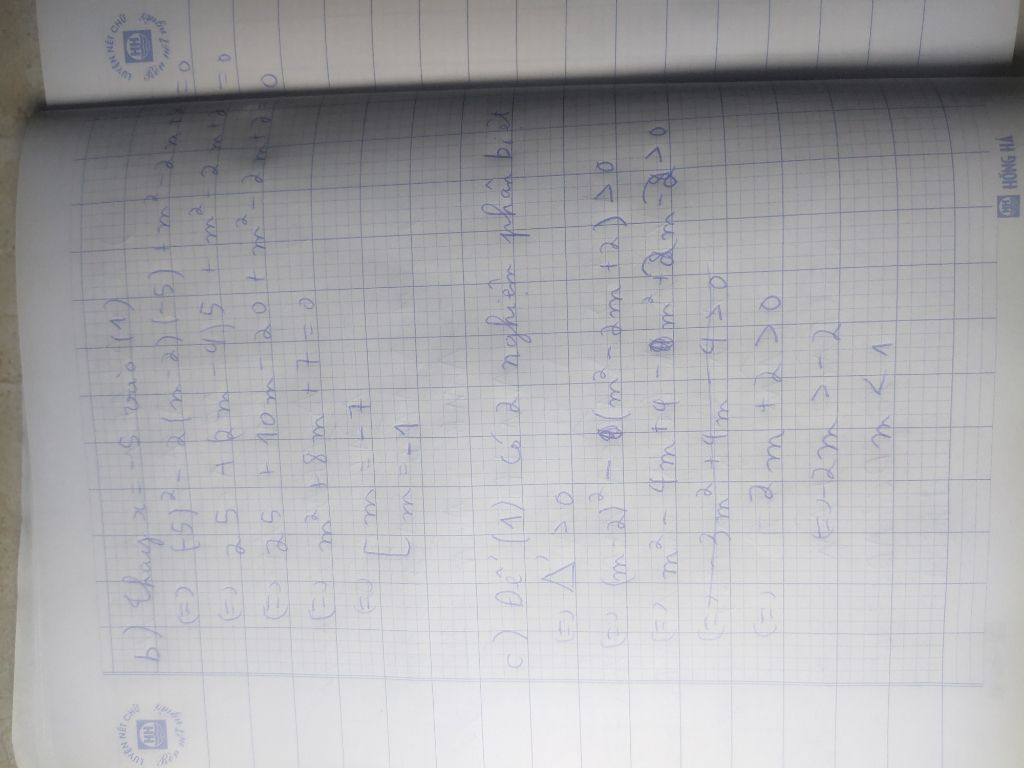 LUYỆN NÉT CHỮ
HH
b) Thay x = -5 vào (1)
(=) (-5)² - 2(m-2)(-5) + m² - 2m + 2 = 0
(=) 25 + (2m - 4)5 + m² - 2m + 2 = 0
(=) 25 + 10m - 20 + m² - 2m + 2 = 0
(=) m² + 8m + 7 = 0
(=) [ m = -7
[ m = -1
c) Để (1) có 2 nghiệm phân biệt
(=) Δ' > 0
(=) (m-2)² - (m² - 2m + 2) > 0
(=) m² - 4m + 4 - m² + 2m - 2 > 0
(=) -3m² + 4m - 4 > 0
(=) -2m + 2 > 0
(=) -2m > -2
m < 1
LUYỆN NÉT CHỮ
HH
HỒNG HÀ